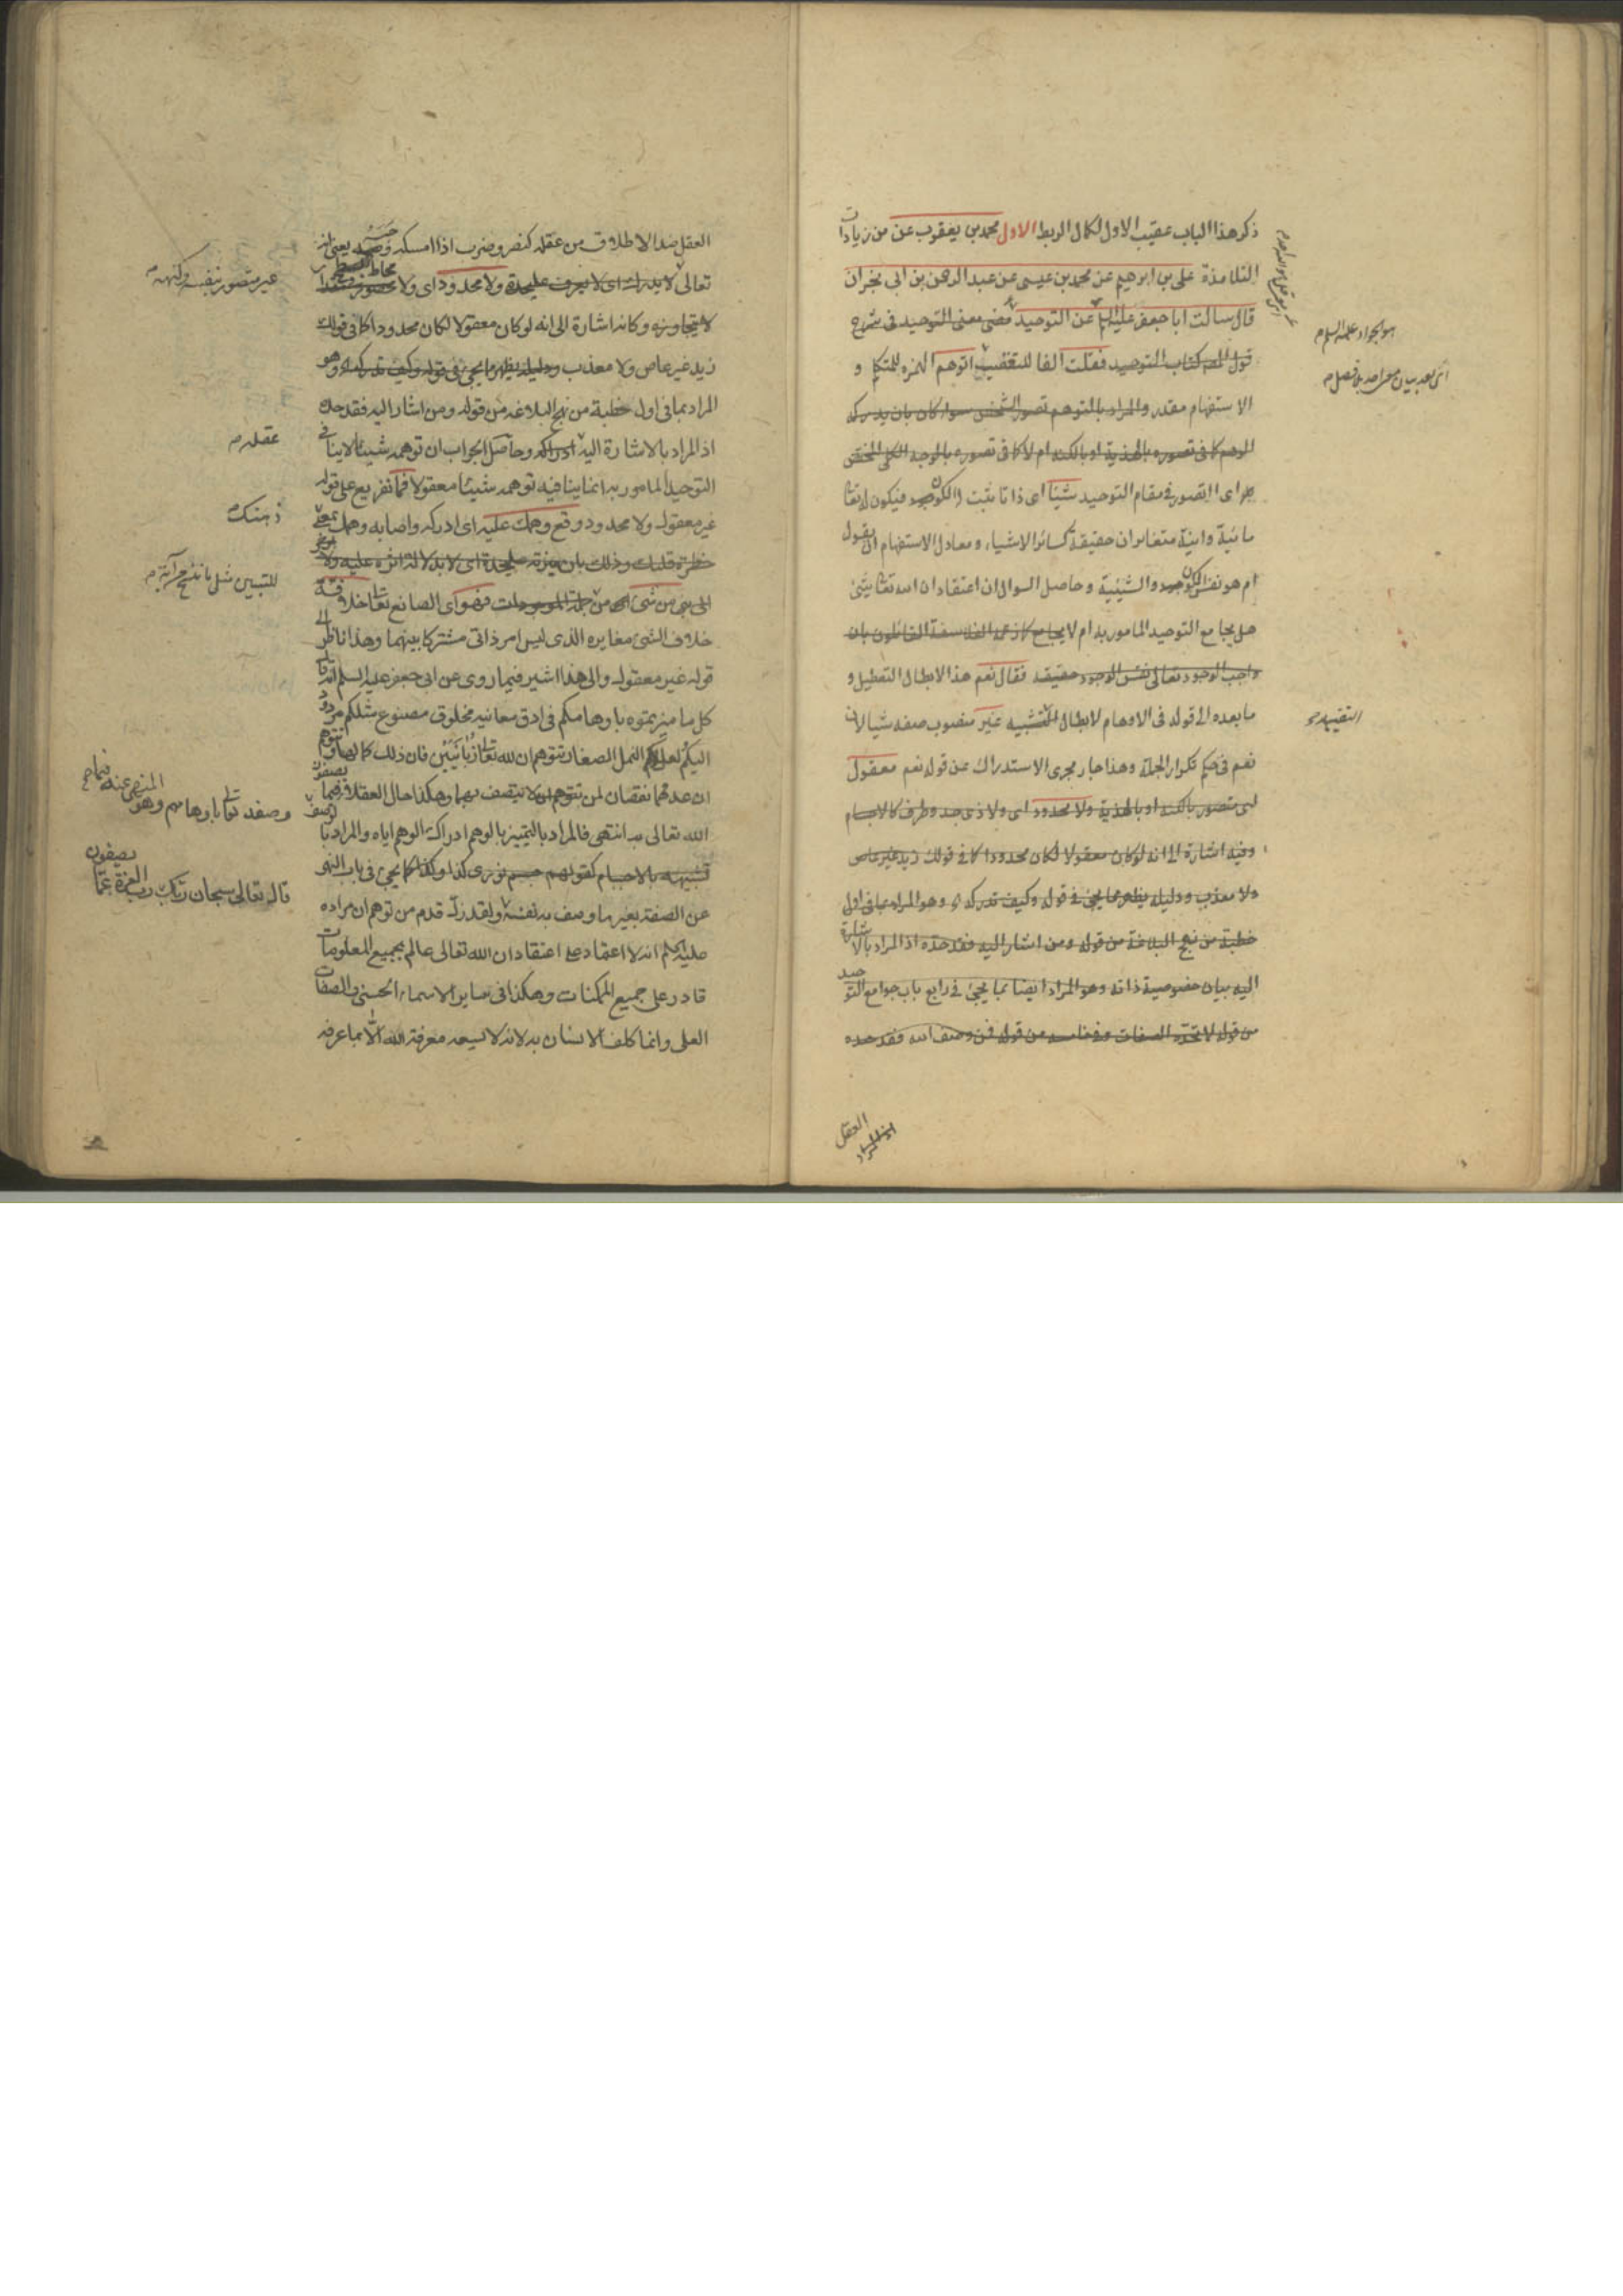 ذكر هذا الباب عقيب الاول لكمال الربط الاول محمد بن يعقوب عن من زيادات
التلامذة على بن ابرهيم عن محمد بن عيسى عن عبد الرحمن بن ابي نجران
قال سالت ابا جعفر عليه عن التوحيد مضى معنى التوحيد فى شرح
قول المص كتاب التوحيد فقلت الفا للتعقيب اتوهم الهمزه للمتكلم و
الاستفهام مقدر والمراد بالتوهم تصور الشخص سوا كان بان يدركه
الوهم كما فى تصوره بالهذية او بالكنه ام لا كما فى تصوره بالوجه الكلى المختص
اى ااتصور فى مقام التوحيد شيئا اى ذاتا يثبت الكون فيكون له تعا
مائية وانية متغايران حقيقة كسائر الاشياء ومعادل الاستفهام ان يقول
ام هو نفس الكون والشيئية وحاصل السوال ان اعتقاد ان الله تعا شئ
هل يجامع التوحيد المامور به ام لا يجامع كما زعمه الفلاسفة القائلون بان
واجب الوجود تعالى نفس الوجود حقيقة فقال نعم هذا الابطال التعطيل و
ما بعده الى قوله فى الاوهام لابطال التشبيه غير منصوب صفه شيا لان
نعم فى حكم تكرار الجملة وهذا جار مجرى الاستدراك عن قوله نعم معقول
اى متصور بالكنه او بالهذية ولا محدود اى ولا ذى حد وطرف كالاجسام
وفيه اشارة الى انه لو كان معقولا لكان محدودا كما فى قولك زيد غير عاص
ولا معذب ودليله يظهر مما يجئ فى قوله وكيف تدركه وهو المراد بما فى اول
خطبة من نهج البلاغة من قوله ومن اشار اليه فقد حده اذ المراد بالاشارة
اليه بيان خصوصية ذاته وهو المراد ايضا بما يجئ فى رابع باب جوامع التوحيد
من قوله لا تحده الصفات وفى خامسه من قوله فمن وصف الله فقد حده
هو الجواد عليه السلام م
اى بعد بيان معناه بلا فصل م
العقل
اذ المراد
العقل ضد الاطلاق من عقله كنصر وضرب اذا امسكه وحبسه يعنى انه
تعالى لا يدرك اى لا يعرف عليحدة ولا محدود اى ولا محاط
لا يتجاوزه وكانه اشارة الى انه لو كان معقولا لكان محدودا كما فى قولك
زيد غير عاص ولا معذب ودليله يظهر ما يجئ فى قوله وكيف تدركه وهو
المراد بما فى اول خطبة من نهج البلاغه من قوله ومن اشار اليه فقد حده
اذ المراد بالاشارة اليه ادراكه وحاصل الجواب ان توهمه شيئا لا ينافى
التوحيد المامور به انما ينافيه توهمه شيئا معقولا فما تفريع على قوله
غير معقول ولا محدود وقع وهمك عليه اى ادركه واصابه وهمك بمعنى
خطرة قلبك وذلك بان ميزته عليحدة اى لا بدلالة اثره عليه ولا
من شئ من جملة الموجودات فهو اى الصانع تعا خلافه
خلاف الشئ مغايره الذى ليس امر ذاتى مشتركا بينهما وهذا ناظر الى
قوله غير معقول والى هذا اشير فيما روى عن ابى جعفر عليه السلم انه قال
كل ما ميزتموه باوهامكم فى ادق معانيه مخلوق مصنوع مثلكم مردود
اليكم لعل النمل الصغار تتوهم ان لله تعا زبانيتين فان ذلك كمالها وتتوهم
ان عدمهما نقصان لمن لا يتصف بهما وهكذا حال العقلا فيما يصفون
الله تعالى به انتهى فالمراد بالتمييز بالوهم ادراك الوهم اياه والمراد
تشبيهه بالاجسام كقولهم جسم نورى كذا وكذا كما يجئ فى باب النهى
عن الصفة بغير ما وصف به نفسه ولقد زل قدم من توهم ان مراده
عليه السلم انه لا اعتماد على اعتقاد ان الله تعالى عالم بجميع المعلومات
قادر على جميع الممكنات وهكذا فى ساير الاسماء الحسنى والصفات
العلى وانما كلف الانسان به لانه لا يسعه معرفة الله الا بما عرفه
غير متصور بنفسه وكنهه م
عقله م
ذهنك
وصفه تعا باوهامهم وهو المنهى عنه
قال تعالى سبحان ربك رب العزة عما يصفون